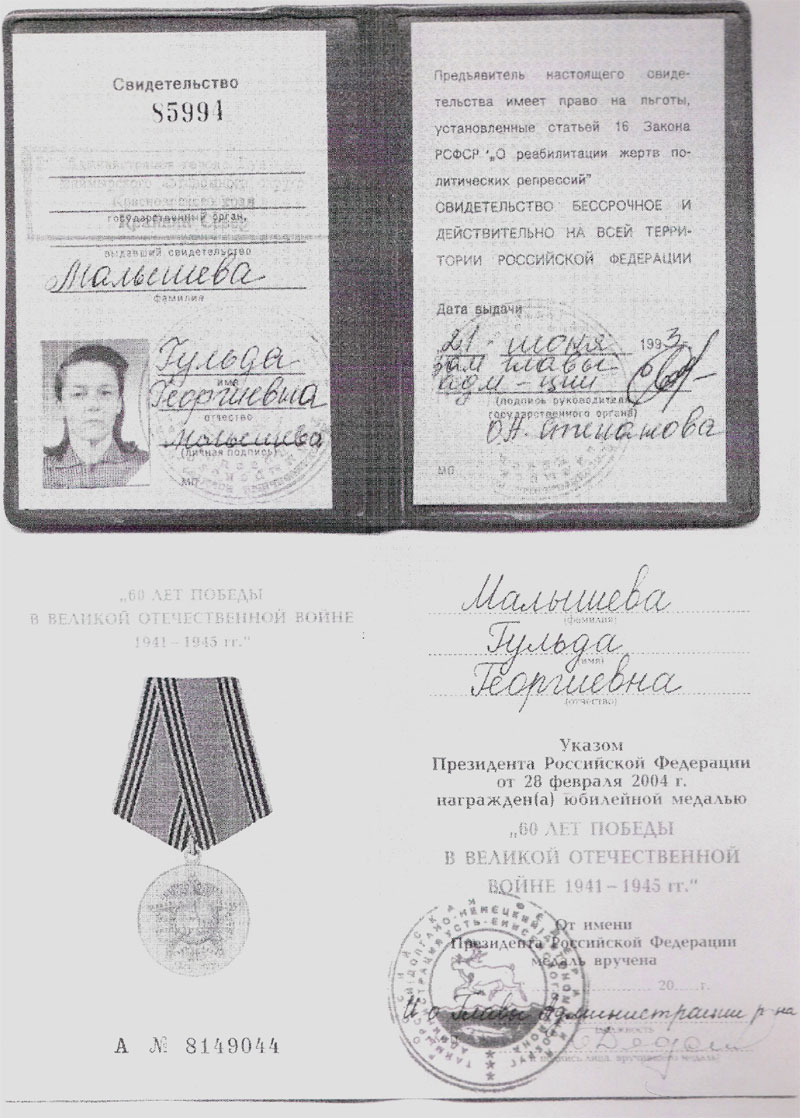 Свидетельство
85994
Администрация города
Таймырского автономного округа
Красноярского края
Крайний Север
государственный орган,
выдавший свидетельство
Малышева
фамилия
Гульда
имя
Георгиевна
отчество
Малышева
(личная подпись)
МП
Предъявитель настоящего свиде-
тельства имеет право на льготы,
установленные статьей 16 Закона
РСФСР „О реабилитации жертв по-
литических репрессий"
СВИДЕТЕЛЬСТВО БЕССРОЧНОЕ И
ДЕЙСТВИТЕЛЬНО НА ВСЕЙ ТЕРРИ-
ТОРИИ РОССИЙСКОЙ ФЕДЕРАЦИИ
Дата выдачи
21 июня 1993
зам главы
адм-ции
(подпись руководителя
государственного органа)
О.Н. Степанова
МП
„60 ЛЕТ ПОБЕДЫ
В ВЕЛИКОЙ ОТЕЧЕСТВЕННОЙ ВОЙНЕ
1941–1945 гг."
А № 8149044
Малышева
(фамилия)
Гульда
(имя)
Георгиевна
(отчество)
Указом
Президента Российской Федерации
от 28 февраля 2004 г.
награжден(а) юбилейной медалью
„60 ЛЕТ ПОБЕДЫ
В ВЕЛИКОЙ ОТЕЧЕСТВЕННОЙ
ВОЙНЕ 1941–1945 гг."
От имени
Президента Российской Федерации
медаль вручена
20 г.
И о Главы Администрации р-на
должность
(подпись лица, вручившего медаль)